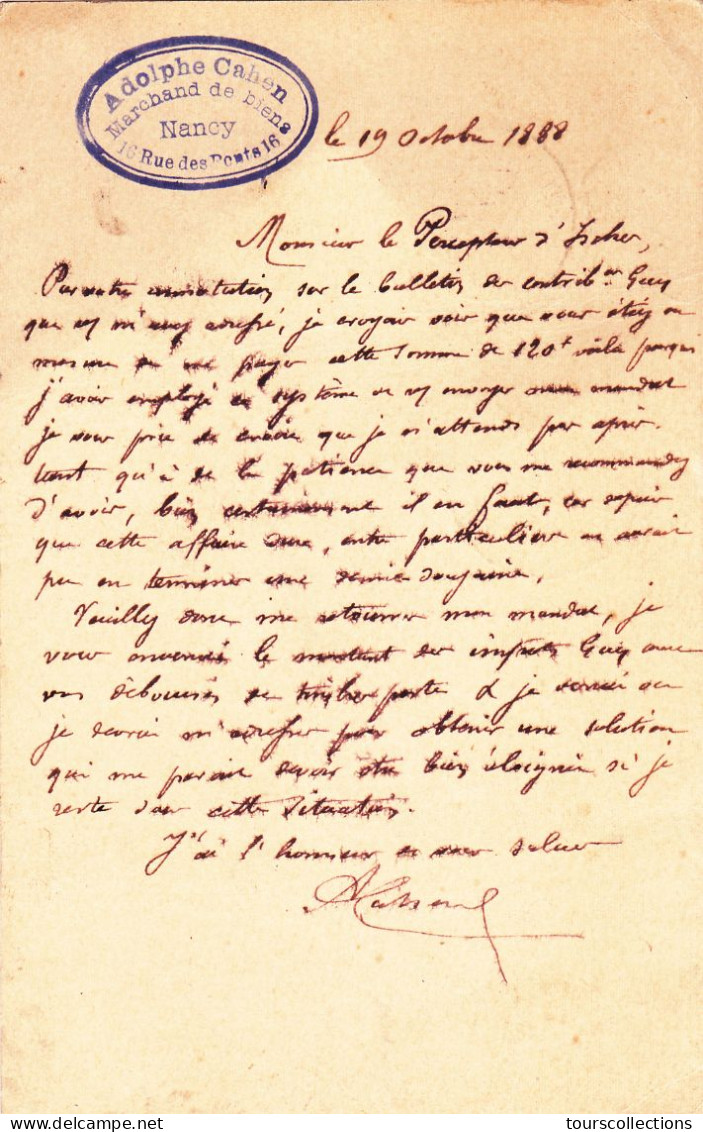 Adolphe Cahen
Marchand de biens
Nancy
16 Rue des Ponts 16
le 19 Octobre 1888
Monsieur le Percepteur d'Ischer,
Par votre annotation sur le bulletin de contrib.on Guy
que v m'avez adressé, je croyais voir que vous étiez en
mesure de me payer cette somme de 120f voilà pourquoi
j'avais employé ce système de v envoyer mon mandat
je vous prie de croire que je n'attends pas après
tant qu'à de la patience que vous me recommandez
d'avoir, bien certainement il en faut, car depuis
que cette affaire dure, entre particulier on aurait
pu en terminer une demie douzaine.
Veuillez donc me retourner mon mandat, je
vous enverrai le montant des impots Guy avec
vos débourés de timbre poste & je verrai où
je devrai m'adresser pour obtenir une solution
qui me parait devoir être bien éloignée si je
reste dans cette situation.
J'ai l'honneur de vous saluer
ACahen
tourscollections